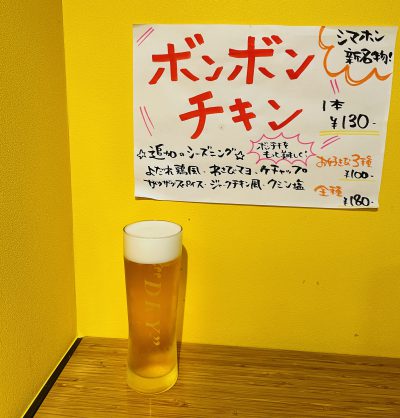 シマホン
新名物!
ボンボン
チキン
1本
¥130-
☆追加のシーズニング☆
ボンチキを
もっと美味しく!
よだれ鶏風、わさびマヨ、ケチャップ
サルサスパイス・ジャークチキン風、クミン塩
お好きな3種
¥100-
全種
¥180-
"DRY"